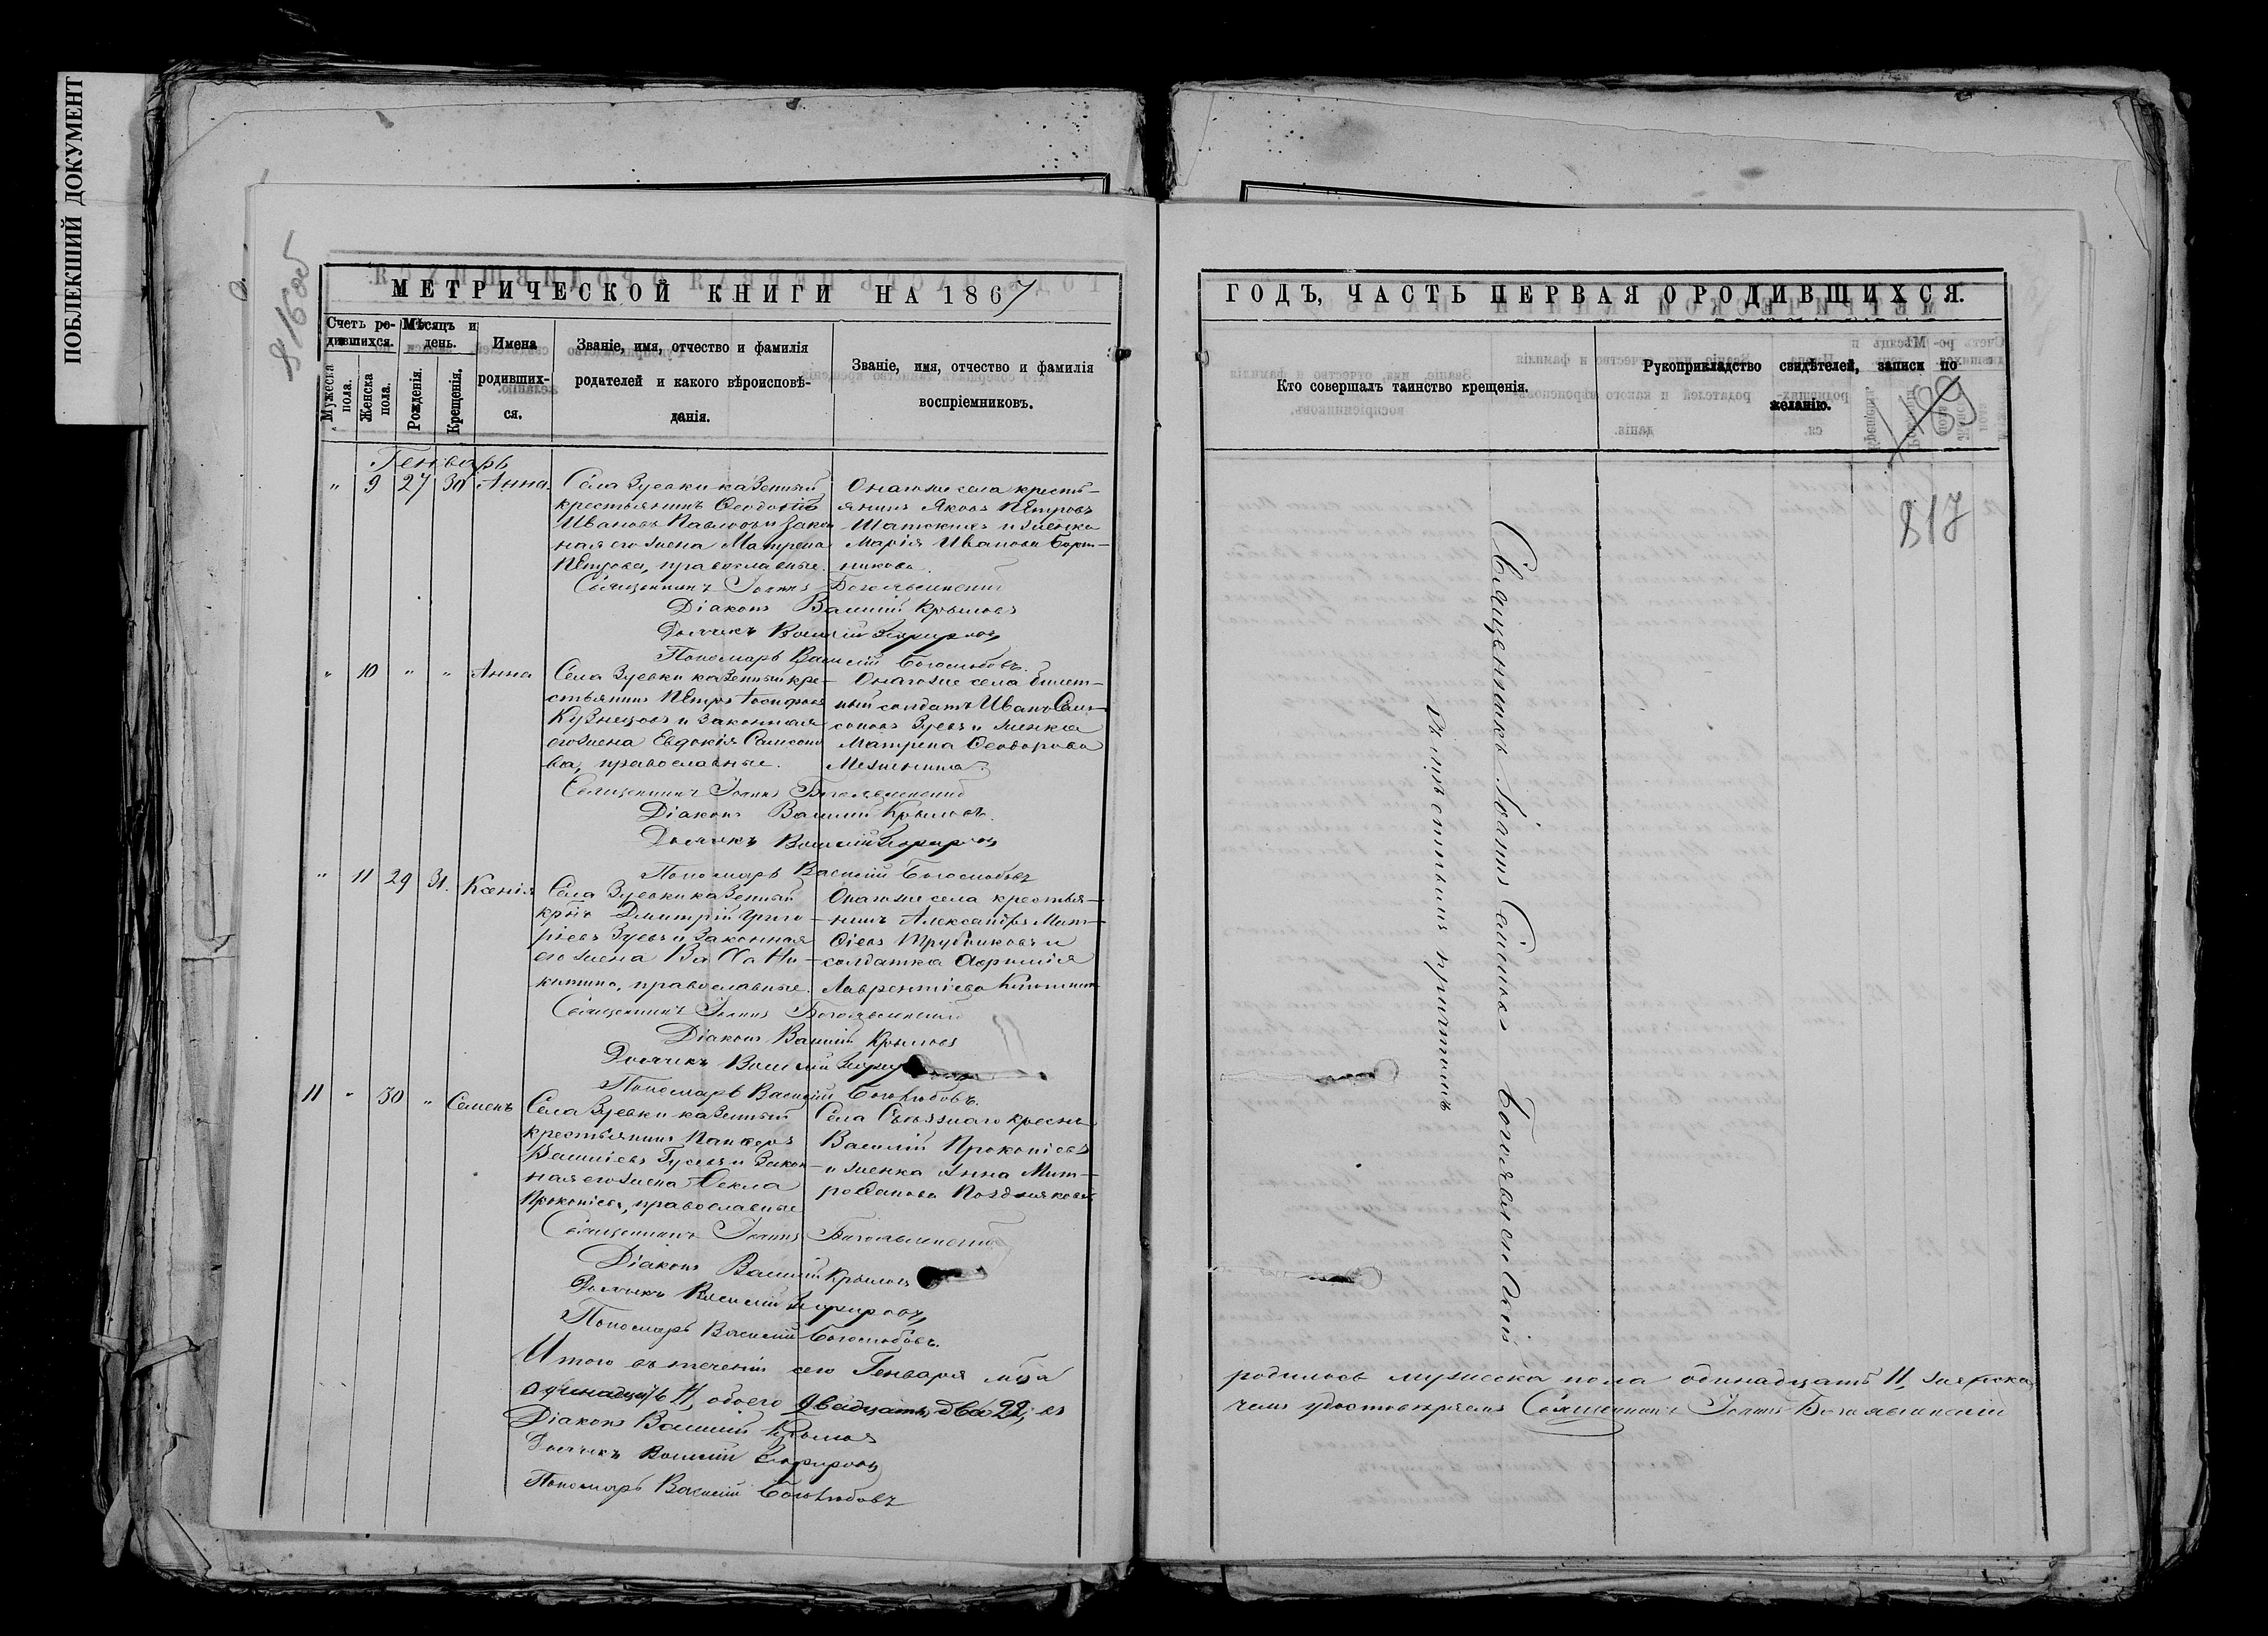 ПОБЛЕКШИЙ ДОКУМЕНТ
816об
МЕТРИЧЕСКОЙ КНИГИ НА 1867
Счетъ ро-
дившихся.
Мѣсяцъ и
день.
Имена
родивших-
ся.
Званіе, имя, отчество и фамилія
родителей и какого вѣроисповѣ-
данія.
Званіе, имя, отчество и фамилія
воспріемниковъ.
Мужеска
пола.
Женска
пола.
Рожденія.
Крещенія.
Генварь
" 9 27 30 Анна.
Села Зуевки казенный
крестьянинъ Ѳеодотій
Ивановъ Павловъ и закон
ная его жена Матрена
Петрова, православные.
Онагоже села кресть-
янинъ Яковъ Петровъ
и женка
Марія Иванова Борт-
никова.
Священникъ Іоаннъ Богоявленскій
Діаконъ Василій Крыловъ
Дьячекъ Василій
Пономарь Василій Боголюбовъ.
" 10 " " Анна
Села Зуевки казенный кре-
стьянинъ Петръ Іосифовъ
Кузнецовъ и законная
его жена Евдокія Самсоно
ва, православные.
Онагоже села билет-
ный солдатъ Иванъ Сам-
соновъ Зуевъ и женка
Матрена Ѳеодорова
Священникъ Іоаннъ Богоявленскій
Діаконъ Василій Крыловъ.
Дьячекъ Василій
Пономарь Василій Боголюбовъ
" 11 29 31. Ксенія
Села Зуевки казенный
крнъ Димитрій Григо
ріевъ Зуевъ и законная
его жена Васса Ни-
китина, православные.
Онагоже села крестья-
нинъ Александръ Мат-
ѳіевъ Трубниковъ и
солдатка
Лаврентіева
Священникъ Іоаннъ Богоявленскій
Діаконъ Василій Крыловъ
Дьячекъ Василій
Пономарь Василій Боголюбовъ.
11 " 30 " Семенъ
Села Зуевки казенный
крестьянинъ
Василіевъ Гусевъ и закон-
ная его жена Ѳекла
Прокопіева, православные
Села Съезжаго
Василій Прокопіевъ
и женка Анна Мит-
рофанова Позднякова
Священникъ Іоаннъ Богоявленскій
Діаконъ Василій Крыловъ
Дьячекъ Василій
Пономарь Василій Боголюбовъ.
Итого въ теченіи сего Генваря мца
одинадцать 11, обоего двадцать два 22, въ
Діаконъ Василій Крыловъ
Дьячекъ Василій
Пономарь Василій Боголюбовъ
ГОДЪ, ЧАСТЬ ПЕРВАЯ О РОДИВШИХСЯ.
Кто совершалъ таинство крещенія.
Рукоприкладство свидѣтелей, записи по
желанію.
1189
817
Священникъ Іоаннъ Богоявленскій
съ причтомъ
родилось мужеска пола одинадцать 11, женска
чемъ удостовѣряемъ Священникъ Іоаннъ Богоявленскій